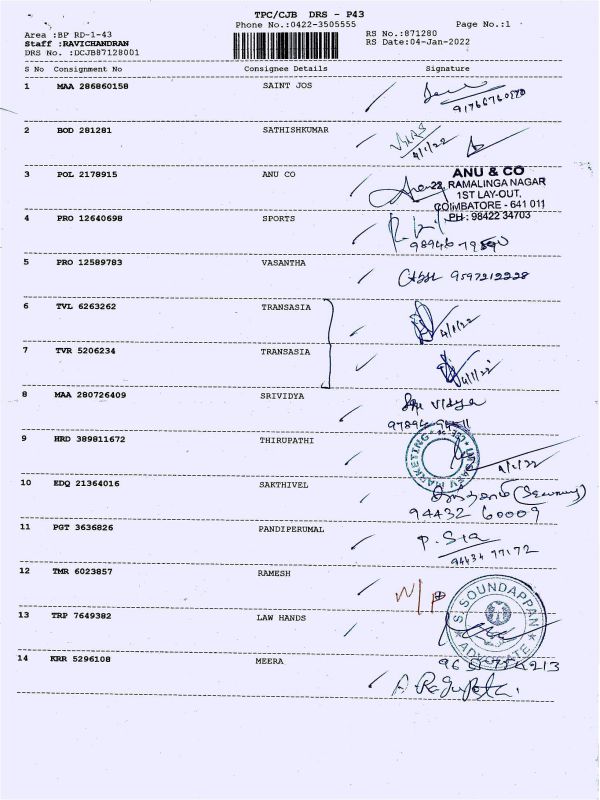 TPC/CJB DRS - P43
Phone No.:0422-3505555
Page No.:1
Area :BP RD-1-43
RS No.:871280
Staff :RAVICHANDRAN
RS Date:04-Jan-2022
DRS No. :DCJB87128001
S No Consignment No Consignee Details Signature
1 MAA 286860158 SAINT JOS
2 BOD 281281 SATHISHKUMAR
4/1/22
3 POL 2178915 ANU CO
ANU & CO
22, RAMALINGA NAGAR
1ST LAY-OUT,
COIMBATORE - 641 011
PH : 98422 34703
4 PRO 12640698 SPORTS
5 PRO 12589783 VASANTHA
9597212228
6 TVL 6263262 TRANSASIA
4/1/22
7 TVR 5206234 TRANSASIA
4/1/22
8 MAA 280726409 SRIVIDYA
Sri Vidya
9 HRD 389811672 THIRUPATHI
MARKETING
4/1/22
10 EDQ 21364016 SAKTHIVEL
(Security)
94432 60009
11 PGT 3636826 PANDIPERUMAL
12 TMR 6023857 RAMESH
13 TRP 7649382 LAW HANDS
S. SOUNDAPPAN
ADVOCATE
14 KRR 5296108 MEERA